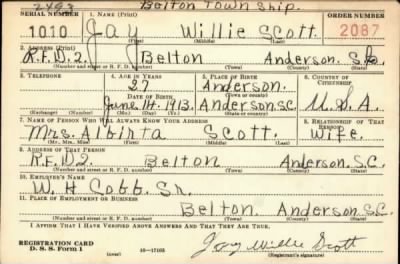 2493 Belton Township.
SERIAL NUMBER 1. NAME (Print) ORDER NUMBER
1010 Jay Willie Scott 2087
(First) (Middle) (Last)
2. ADDRESS (Print)
R.F.D.2. Belton Anderson. S.C.
(Number and street or R. F. D. number) (Town) (County) (State)
3. TELEPHONE 4. AGE IN YEARS 5. PLACE OF BIRTH 6. COUNTRY OF CITIZENSHIP
27 Anderson.
DATE OF BIRTH (Town or county)
June 14. 1913. Anderson S.C. U.S.A.
(Exchange) (Number) (Mo.) (Day) (Yr.) (State or country)
7. NAME OF PERSON WHO WILL ALWAYS KNOW YOUR ADDRESS 8. RELATIONSHIP OF THAT PERSON
Mrs. Albirta Scott. Wife.
(Mr., Mrs., Miss) (First) (Middle) (Last)
9. ADDRESS OF THAT PERSON
R.F.D.2. Belton Anderson, S.C.
(Number and street or R. F. D. number) (Town) (County) (State)
10. EMPLOYER'S NAME
W. H Cobb. Sr.
11. PLACE OF EMPLOYMENT OR BUSINESS
Belton. Anderson. S.C.
(Number and street or R. F. D. number) (Town) (County) (State)
I AFFIRM THAT I HAVE VERIFIED ABOVE ANSWERS AND THAT THEY ARE TRUE.
REGISTRATION CARD Jay Willie Scott
D. S. S. FORM 1 (over) 16—17105 (Registrant's signature)